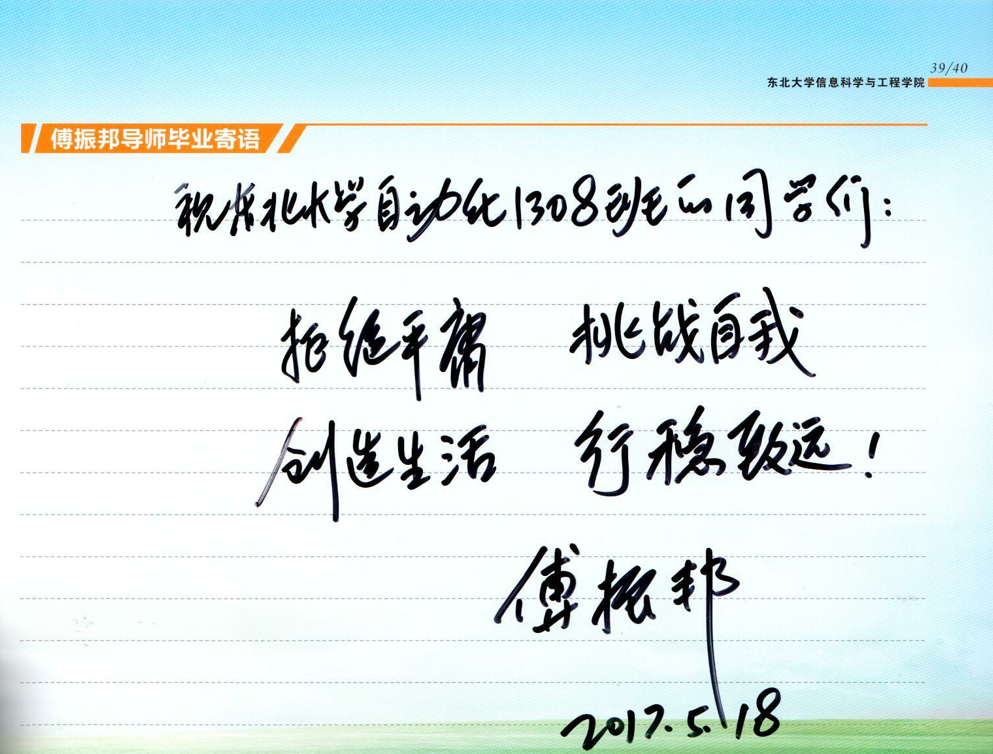 39/40
东北大学信息科学与工程学院
傅振邦导师毕业寄语
祝东北大学自动化1308班的同学们：
拒绝平庸 挑战自我
创造生活 行稳致远！
傅振邦
2017.5.18